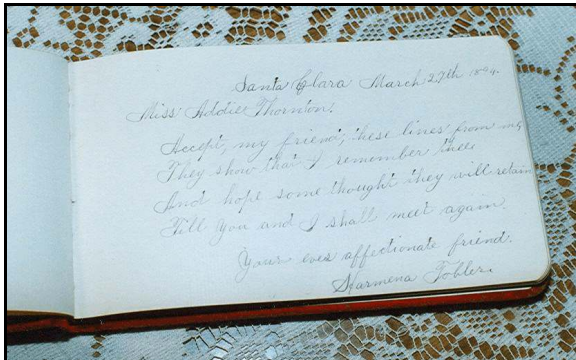 Santa Clara March 27th 1894.
Miss Addie Thornton.
Accept, my friend, these lines from me,
They show that I remember thee
And hope some thought they will retain
Till you and I shall meet again.
Your ever affectionate friend.
Harmena Tobler.